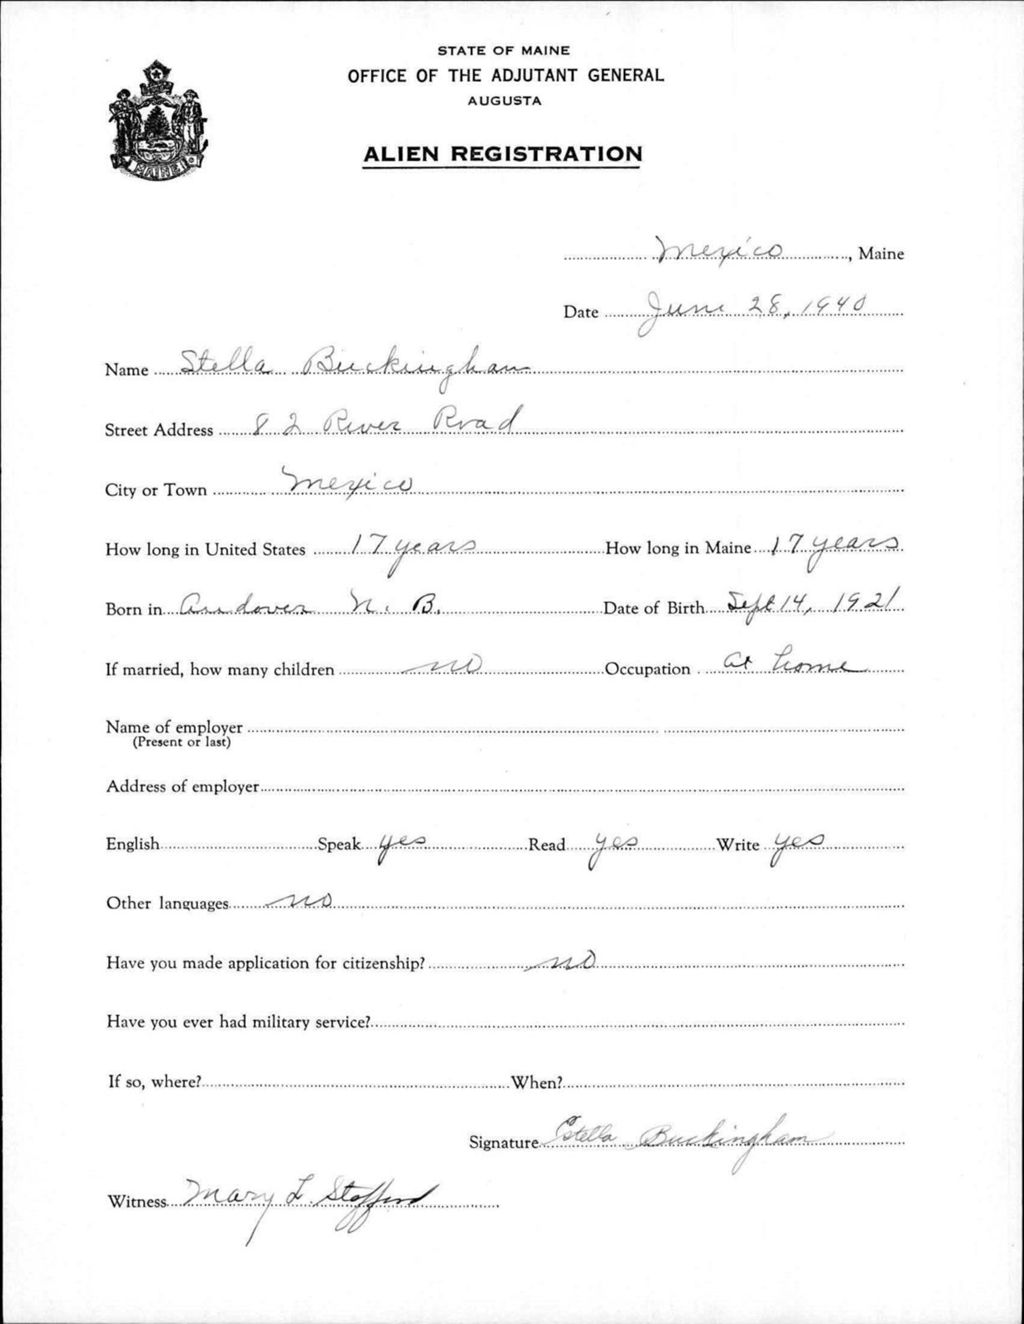 STATE OF MAINE
OFFICE OF THE ADJUTANT GENERAL
AUGUSTA
ALIEN REGISTRATION
MAINE
Mexico, Maine
Date June 28, 1940
Name Stella Buckingham
Street Address 82 River Road
City or Town Mexico
How long in United States 17 years How long in Maine 17 years
Born in Andover N. B. Date of Birth Sept 14, 1921
If married, how many children no Occupation at home
Name of employer
(Present or last)
Address of employer
English Speak yes Read yes Write yes
Other languages no
Have you made application for citizenship? no
Have you ever had military service?
If so, where? When?
Signature Estella Buckingham
Witness Mary L. Stafford